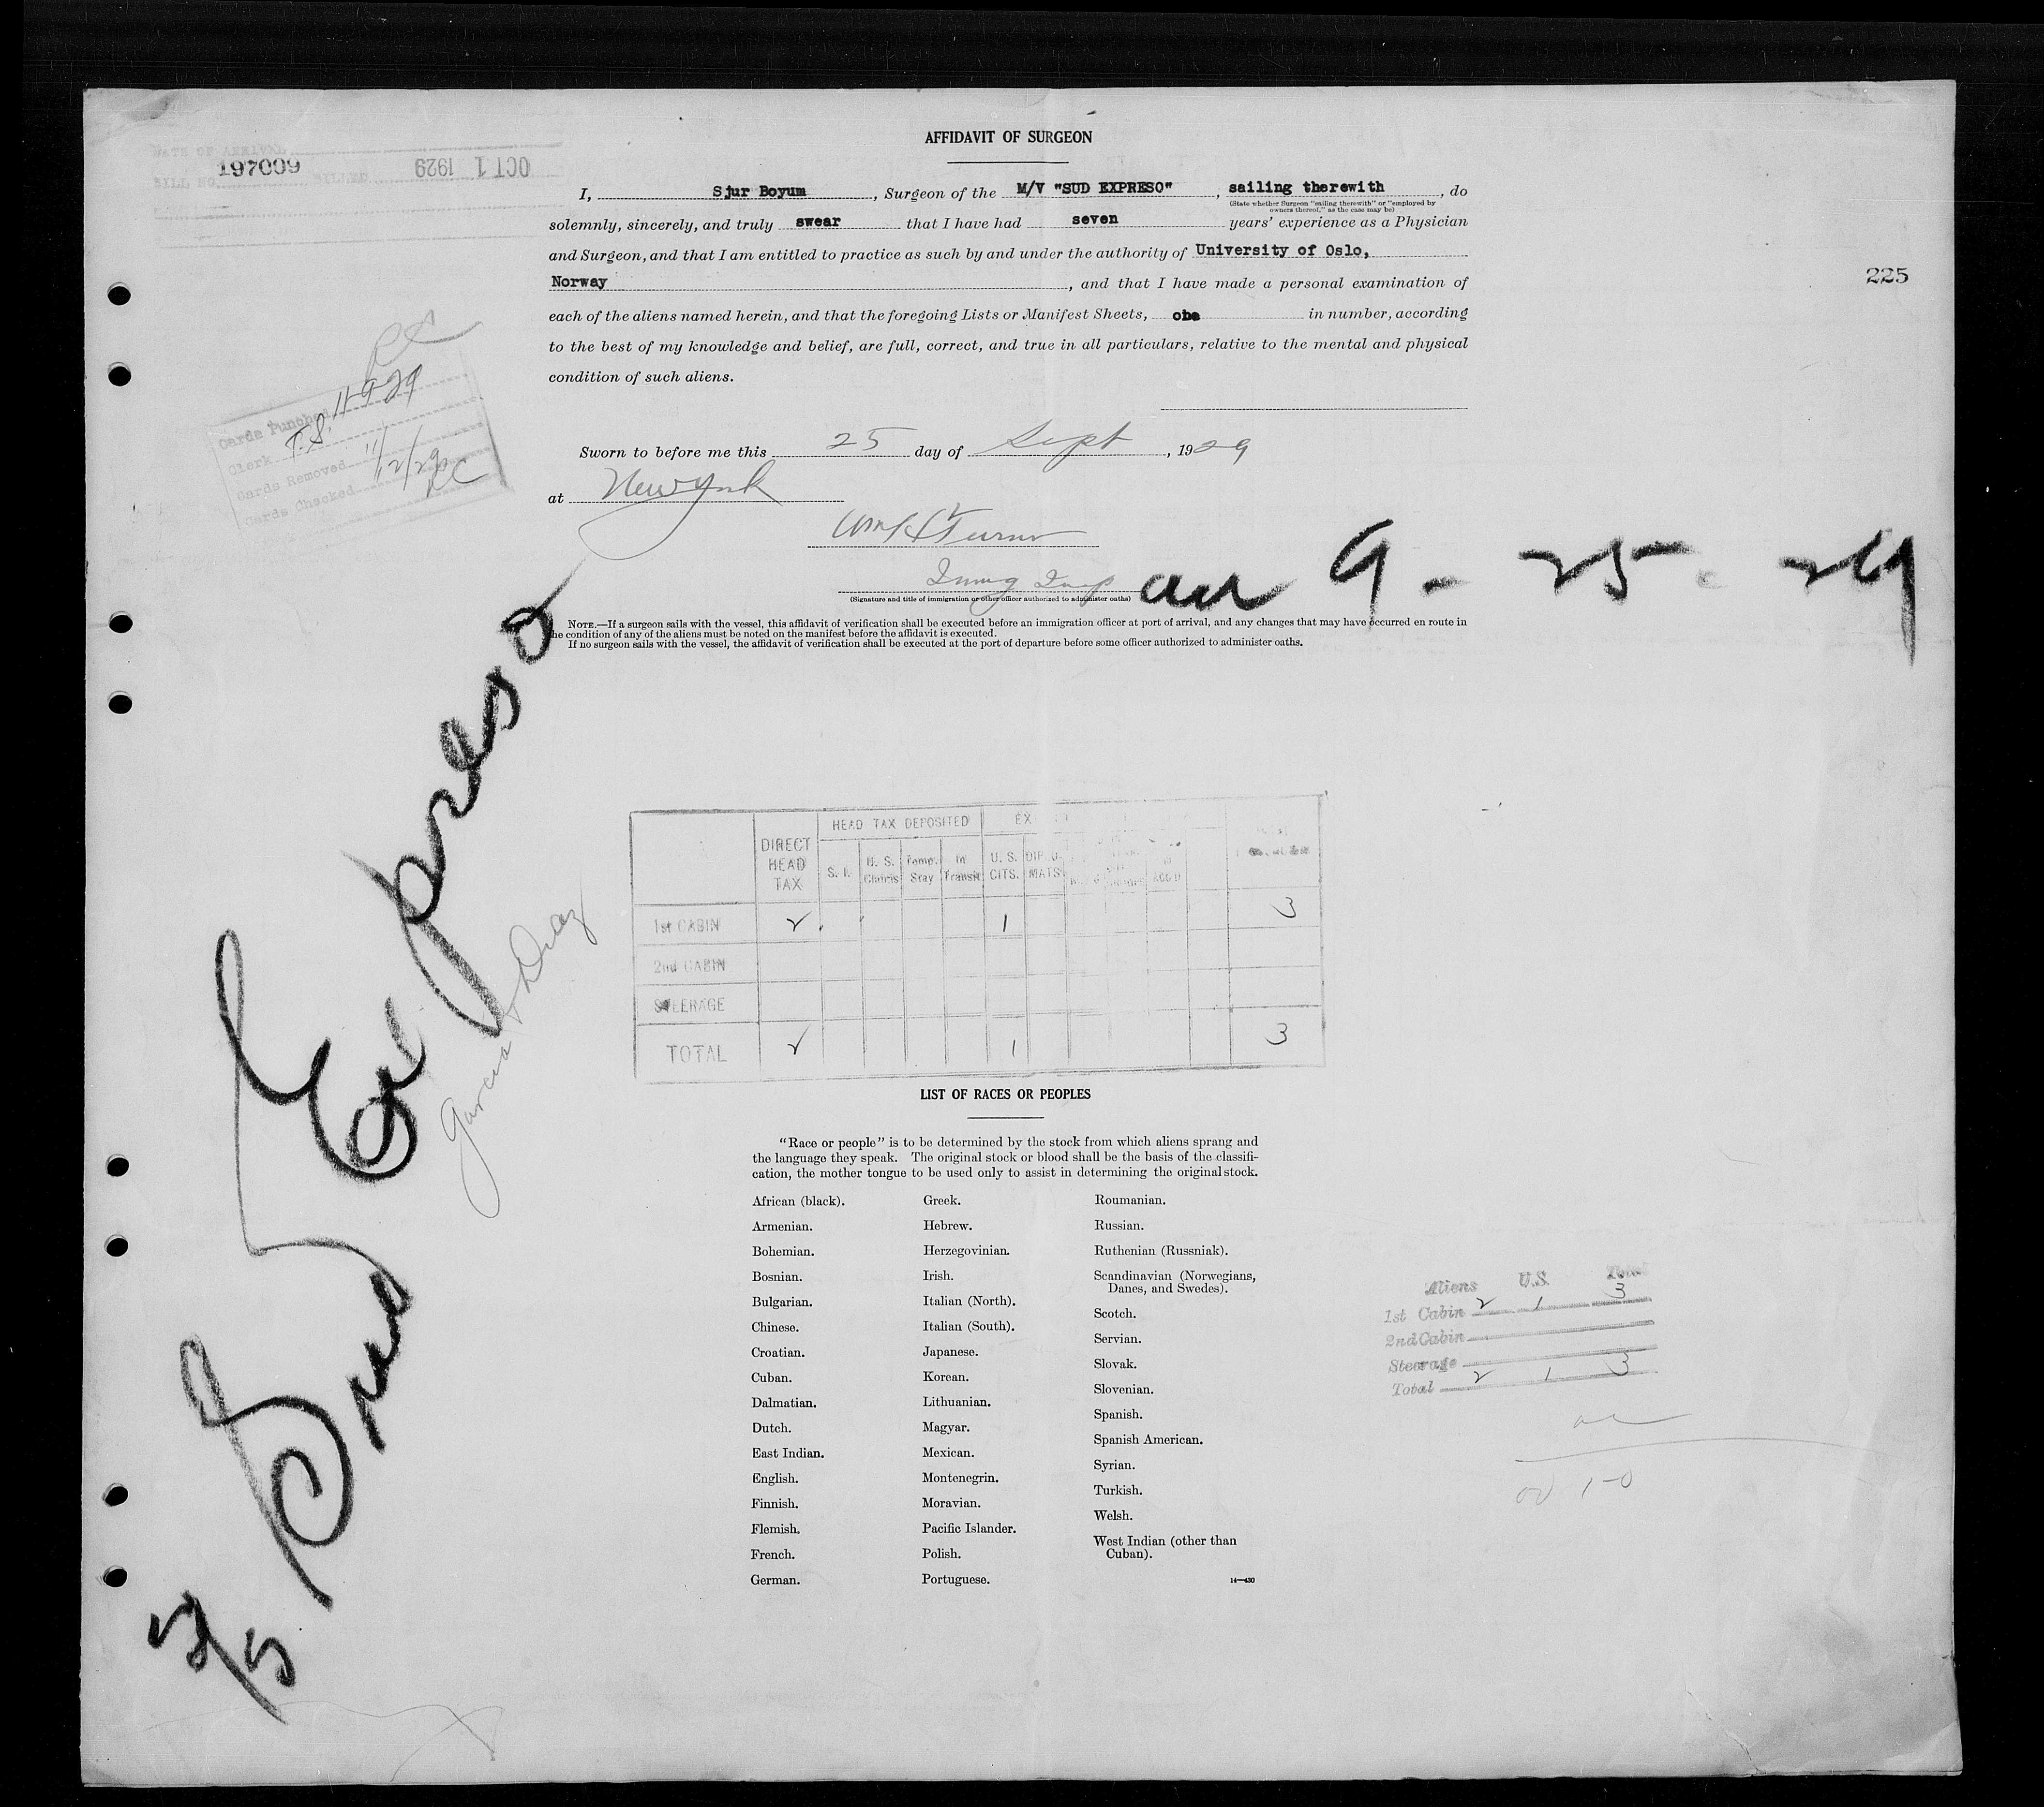 AFFIDAVIT OF SURGEON
DATE OF ARRIVAL
197009
BILL NO. BILLED OCT 1 1929
I, Sjur Boyum, Surgeon of the M/V "SUD EXPRESO", sailing therewith, do
(State whether Surgeon "sailing therewith" or "employed by
owners thereof," as the case may be)
solemnly, sincerely, and truly swear that I have had seven years' experience as a Physician
and Surgeon, and that I am entitled to practice as such by and under the authority of University of Oslo,
Norway, and that I have made a personal examination of
225
each of the aliens named herein, and that the foregoing Lists or Manifest Sheets, one in number, according
to the best of my knowledge and belief, are full, correct, and true in all particulars, relative to the mental and physical
condition of such aliens.
Cards Punched
Clerk T.S.
Cards Removed
Cards Checked
Sworn to before me this 25 day of Sept, 1929
at New York
Wm H Turner
Immig Insp
(Signature and title of immigration or other officer authorized to administer oaths)
9-25-29
NOTE.—If a surgeon sails with the vessel, this affidavit of verification shall be executed before an immigration officer at port of arrival, and any changes that may have occurred en route in
the condition of any of the aliens must be noted on the manifest before the affidavit is executed.
If no surgeon sails with the vessel, the affidavit of verification shall be executed at the port of departure before some officer authorized to administer oaths.
Sud Expreso
Garcia & Diaz
DIRECT HEAD TAX
HEAD TAX DEPOSITED
S. I. U. S. Temp. Stay In Transit U. S. CITS. DIPLO-MATS
1st CABIN 2 1 3
2nd CABIN
STEERAGE
TOTAL 2 1 3
LIST OF RACES OR PEOPLES
"Race or people" is to be determined by the stock from which aliens sprang and
the language they speak. The original stock or blood shall be the basis of the classifi-
cation, the mother tongue to be used only to assist in determining the original stock.
African (black).
Armenian.
Bohemian.
Bosnian.
Bulgarian.
Chinese.
Croatian.
Cuban.
Dalmatian.
Dutch.
East Indian.
English.
Finnish.
Flemish.
French.
German.
Greek.
Hebrew.
Herzegovinian.
Irish.
Italian (North).
Italian (South).
Japanese.
Korean.
Lithuanian.
Magyar.
Mexican.
Montenegrin.
Moravian.
Pacific Islander.
Polish.
Portuguese.
Roumanian.
Russian.
Ruthenian (Russniak).
Scandinavian (Norwegians,
Danes, and Swedes).
Scotch.
Servian.
Slovak.
Slovenian.
Spanish.
Spanish American.
Syrian.
Turkish.
Welsh.
West Indian (other than
Cuban).
14—430
Aliens U.S. Total
1st Cabin 2 1 3
2nd Cabin
Steerage
Total 2 1 3